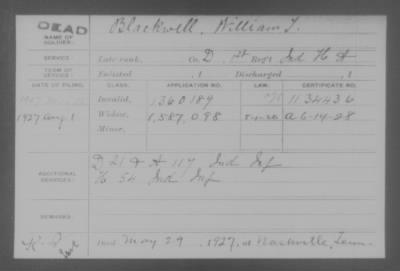 DEAD
NAME OF SOLDIER: Blackwell, William T.
SERVICE: Late rank, Co. D, 1st Reg't Ind H A
TERM OF SERVICE: Enlisted , 1 Discharged , 1
DATE OF FILING. CLASS. APPLICATION NO. LAW. CERTIFICATE NO.
Invalid, 1360189 1134436
1927 Aug 1 Widow, 1,587,098 A 6-14-28
Minor,
ADDITIONAL SERVICES: D 21 & A 117 Ind Inf
H 54 Ind Inf
REMARKS:
Died May 29, 1927, at Nashville, Tenn.